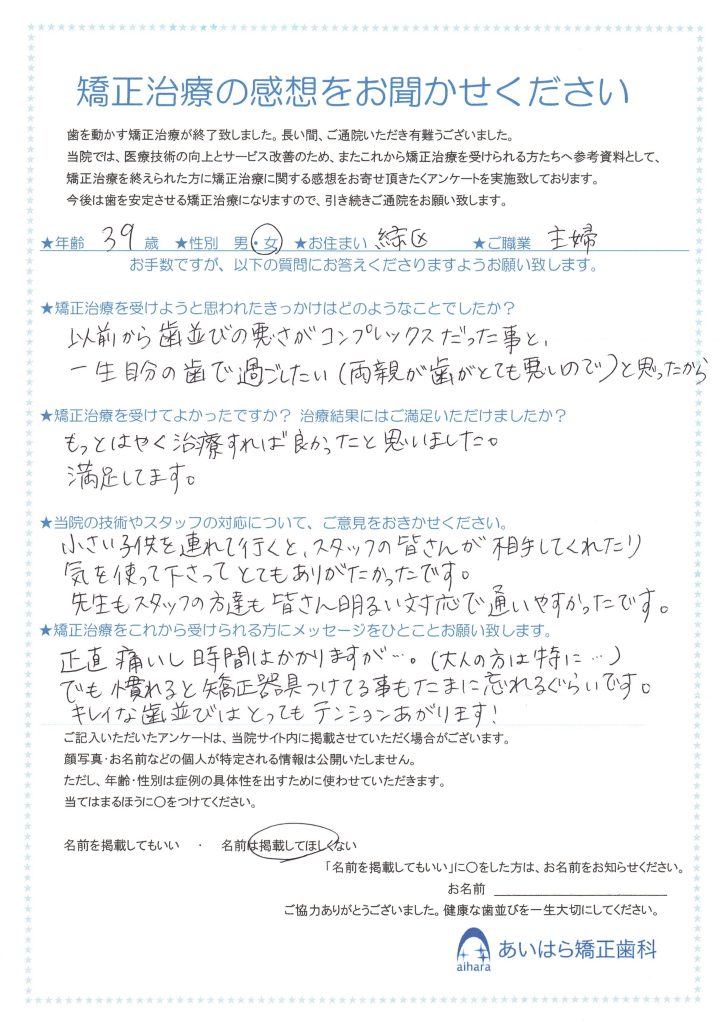 矯正治療の感想をお聞かせください
歯を動かす矯正治療が終了致しました。長い間、ご通院いただき有難うございました。
当院では、医療技術の向上とサービス改善のため、またこれから矯正治療を受けられる方たちへ参考資料として、
矯正治療を終えられた方に矯正治療に関する感想をお寄せ頂きたくアンケートを実施致しております。
今後は歯を安定させる矯正治療になりますので、引き続きご通院をお願い致します。
★年齢 39 歳 ★性別 男・女 ★お住まい 緑区 ★ご職業 主婦
お手数ですが、以下の質問にお答えくださりますようお願い致します。
★矯正治療を受けようと思われたきっかけはどのようなことでしたか？
以前から歯並びの悪さがコンプレックスだった事と、
一生自分の歯で過ごしたい(両親が歯がとても悪いので)と思ったから
★矯正治療を受けてよかったですか？ 治療結果にはご満足いただけましたか？
もっとはやく治療すれば良かったと思いました。
満足してます。
★当院の技術やスタッフの対応について、ご意見をおきかせください。
小さい子供を連れて行くと、スタッフの皆さんが相手してくれたり
気を使って下さってとてもありがたかったです。
先生もスタッフの方達も皆さん明るい対応で通いやすかったです。
★矯正治療をこれから受けられる方にメッセージをひとことお願い致します。
正直痛いし時間はかかりますが…。(大人の方は特に…)
でも慣れると矯正器具つけてる事もたまに忘れるぐらいです。
キレイな歯並びはとってもテンションあがります!
ご記入いただいたアンケートは、当院サイト内に掲載させていただく場合がございます。
顔写真・お名前などの個人が特定される情報は公開いたしません。
ただし、年齢・性別は症例の具体性を出すために使わせていただきます。
当てはまるほうに○をつけてください。
名前を掲載してもいい ・ 名前は掲載してほしくない
「名前を掲載してもいい」に○をした方は、お名前をお知らせください。
お名前
ご協力ありがとうございました。健康な歯並びを一生大切にしてください。
aihara あいはら矯正歯科